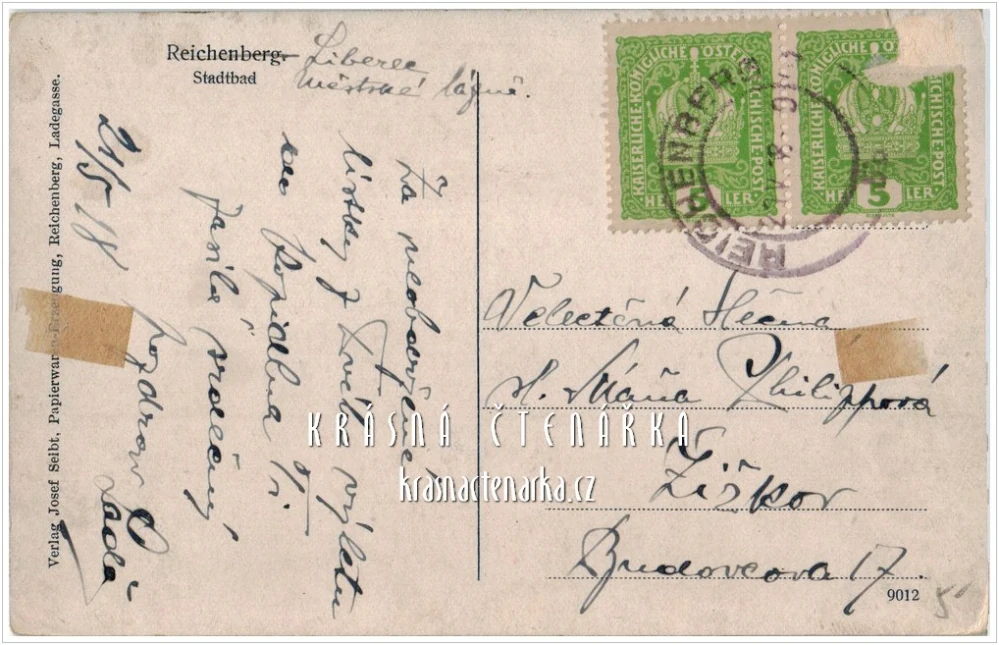 Reichenberg.
Stadtbad
Liberec
městské lázně.
Verlag Josef Seibt, Papierwaren-Erzeugung, Reichenberg, Ladegasse.
21/5 18
Za neobdržené
lístky z
výletu
srdečný
pozdrav
Láďa
KAISERLICHE KÖNIGLICHE ÖSTERREICHISCHE POST
5
HELLER
KAISERLICHE KÖNIGLICHE ÖSTERREICHISCHE POST
5
HELLER
REICHENBERG
Velectěná Slečna
sl. Máňa Philippová
Žižkov
Budovcova 17.
9012
KRÁSNÁ ČTENÁŘKA
krasnactenarka.cz